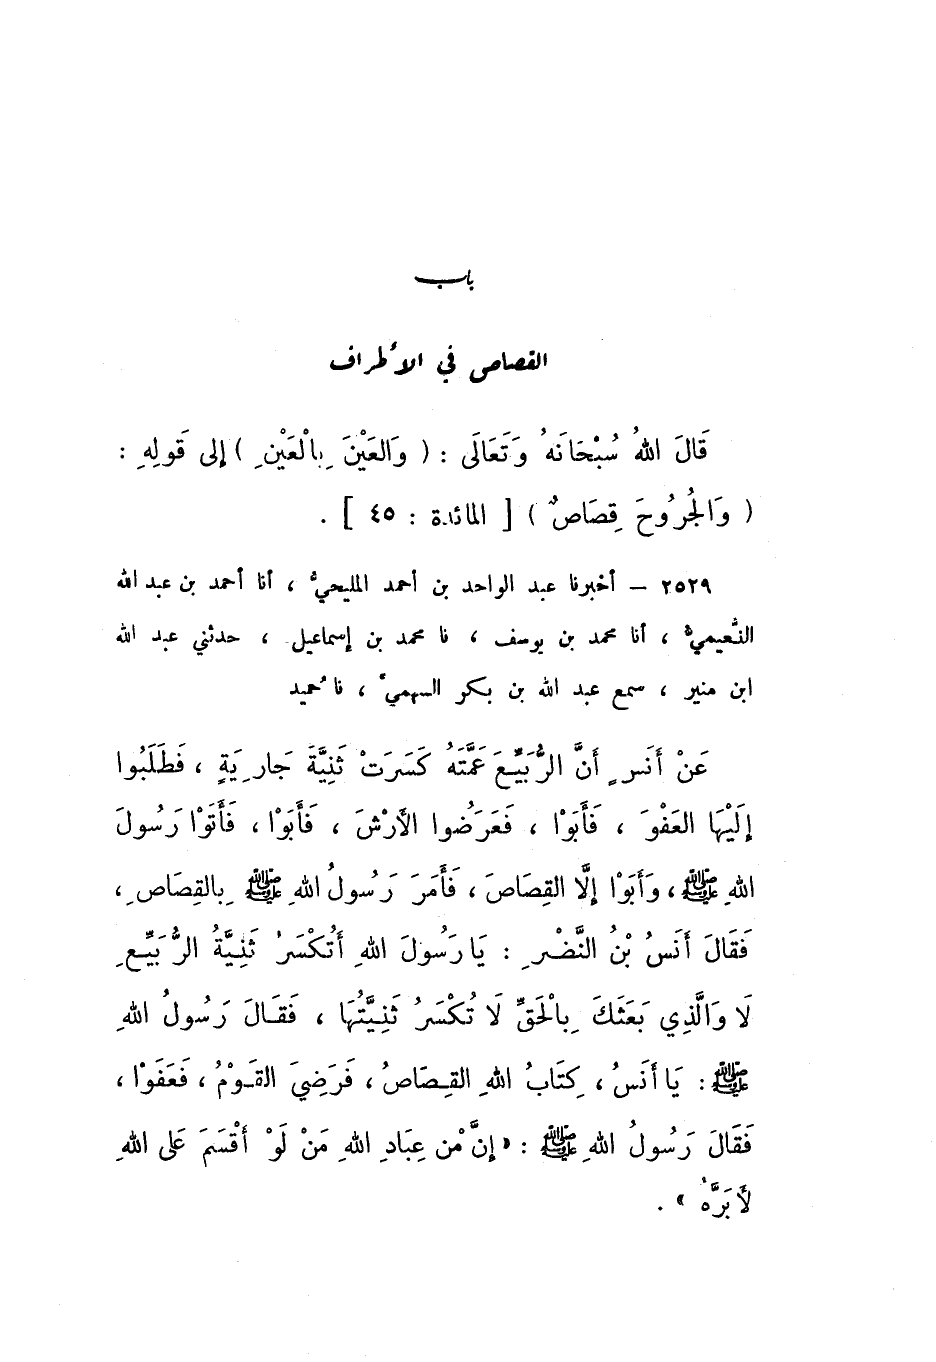 باب
القصاص في الأطراف
قَالَ اللهُ سُبْحَانَهُ وَتَعَالَى : ( وَالعَيْنَ بِالْعَيْنِ ) إلى قَولِهِ :
( وَالجُرُوحَ قِصَاصٌ ) [ المائدة : ٤٥ ] .
٢٥٢٩ – أخبرنا عبد الواحد بن أحمد المليحيُّ ، أنا أحمد بن عبد الله
النُّعيميُّ ، أنا محمد بن يوسف ، نا محمد بن إسماعيل ، حدثني عبد الله
ابن منير ، سمع عبد الله بن بكر السهميَّ ، نا حُميد
عَنْ أَنَسٍ أَنَّ الرُّبَيِّعَ عَمَّتَهُ كَسَرَتْ ثَنِيَّةَ جَارِيَةٍ ، فَطَلَبُوا
إِلَيْهَا العَفْوَ ، فَأَبَوْا ، فَعَرَضُوا الأَرْشَ ، فَأَبَوْا ، فَأَتَوْا رَسُولَ
اللهِ ﷺ ، وَأَبَوْا إِلَّا القِصَاصَ ، فَأَمَرَ رَسُولُ اللهِ ﷺ بِالقِصَاصِ ،
فَقَالَ أَنَسُ بْنُ النَّضْرِ : يَا رَسُولَ اللهِ أَتُكْسَرُ ثَنِيَّةُ الرُّبَيِّعِ
لَا وَالَّذِي بَعَثَكَ بِالْحَقِّ لَا تُكْسَرُ ثَنِيَّتُهَا ، فَقَالَ رَسُولُ اللهِ
ﷺ : يَا أَنَسُ ، كِتَابُ اللهِ القِصَاصُ ، فَرَضِيَ القَوْمُ ، فَعَفَوْا ،
فَقَالَ رَسُولُ اللهِ ﷺ : « إِنَّ مْن عِبَادِ اللهِ مَنْ لَوْ أَقْسَمَ عَلى اللهِ
لأَبَرَّهُ » .